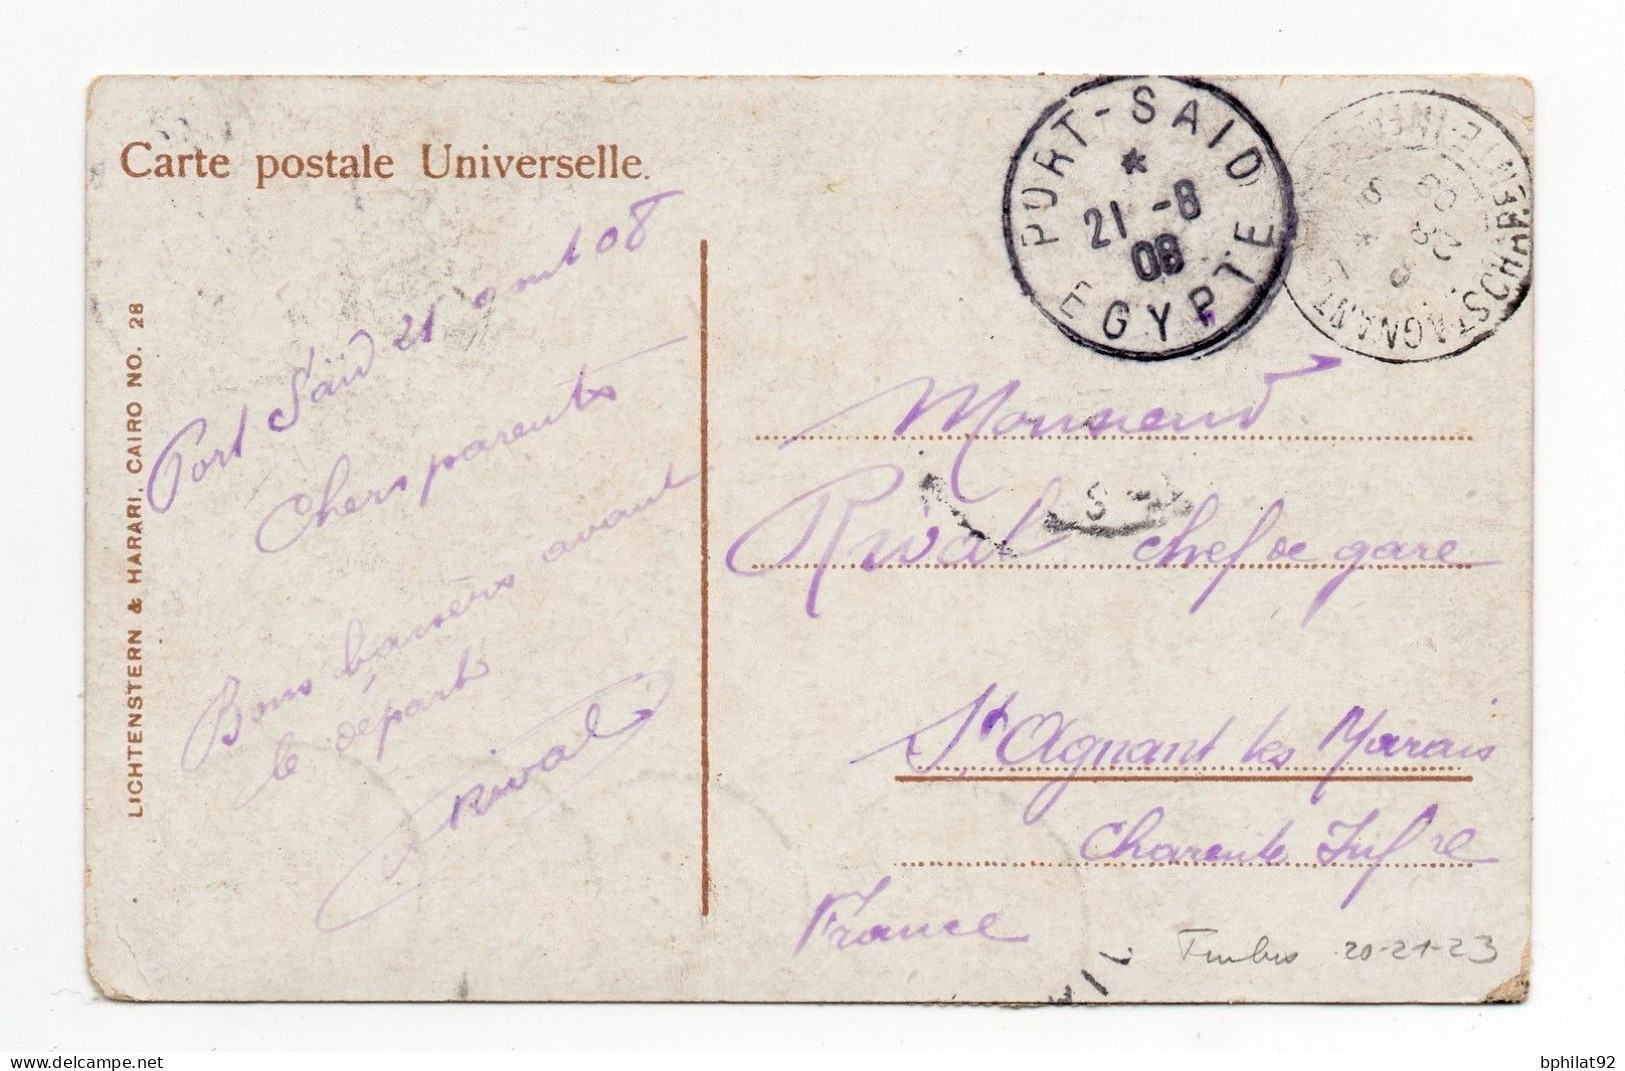 Carte postale Universelle.
LICHTENSTERN & HARARI, CAIRO NO. 28
Port Saïd 21 aout 08
Chers parents
Bons baisers avant
le départ
Rival
PORT-SAID
*
21 -8
08
EGYPTE
ST AGNANT CHARENTE-INFRE
Monsieur
Rival chef de gare
St Agnant les Marais
Charente Infre
France
Timbres 20-21-23
bphilat92